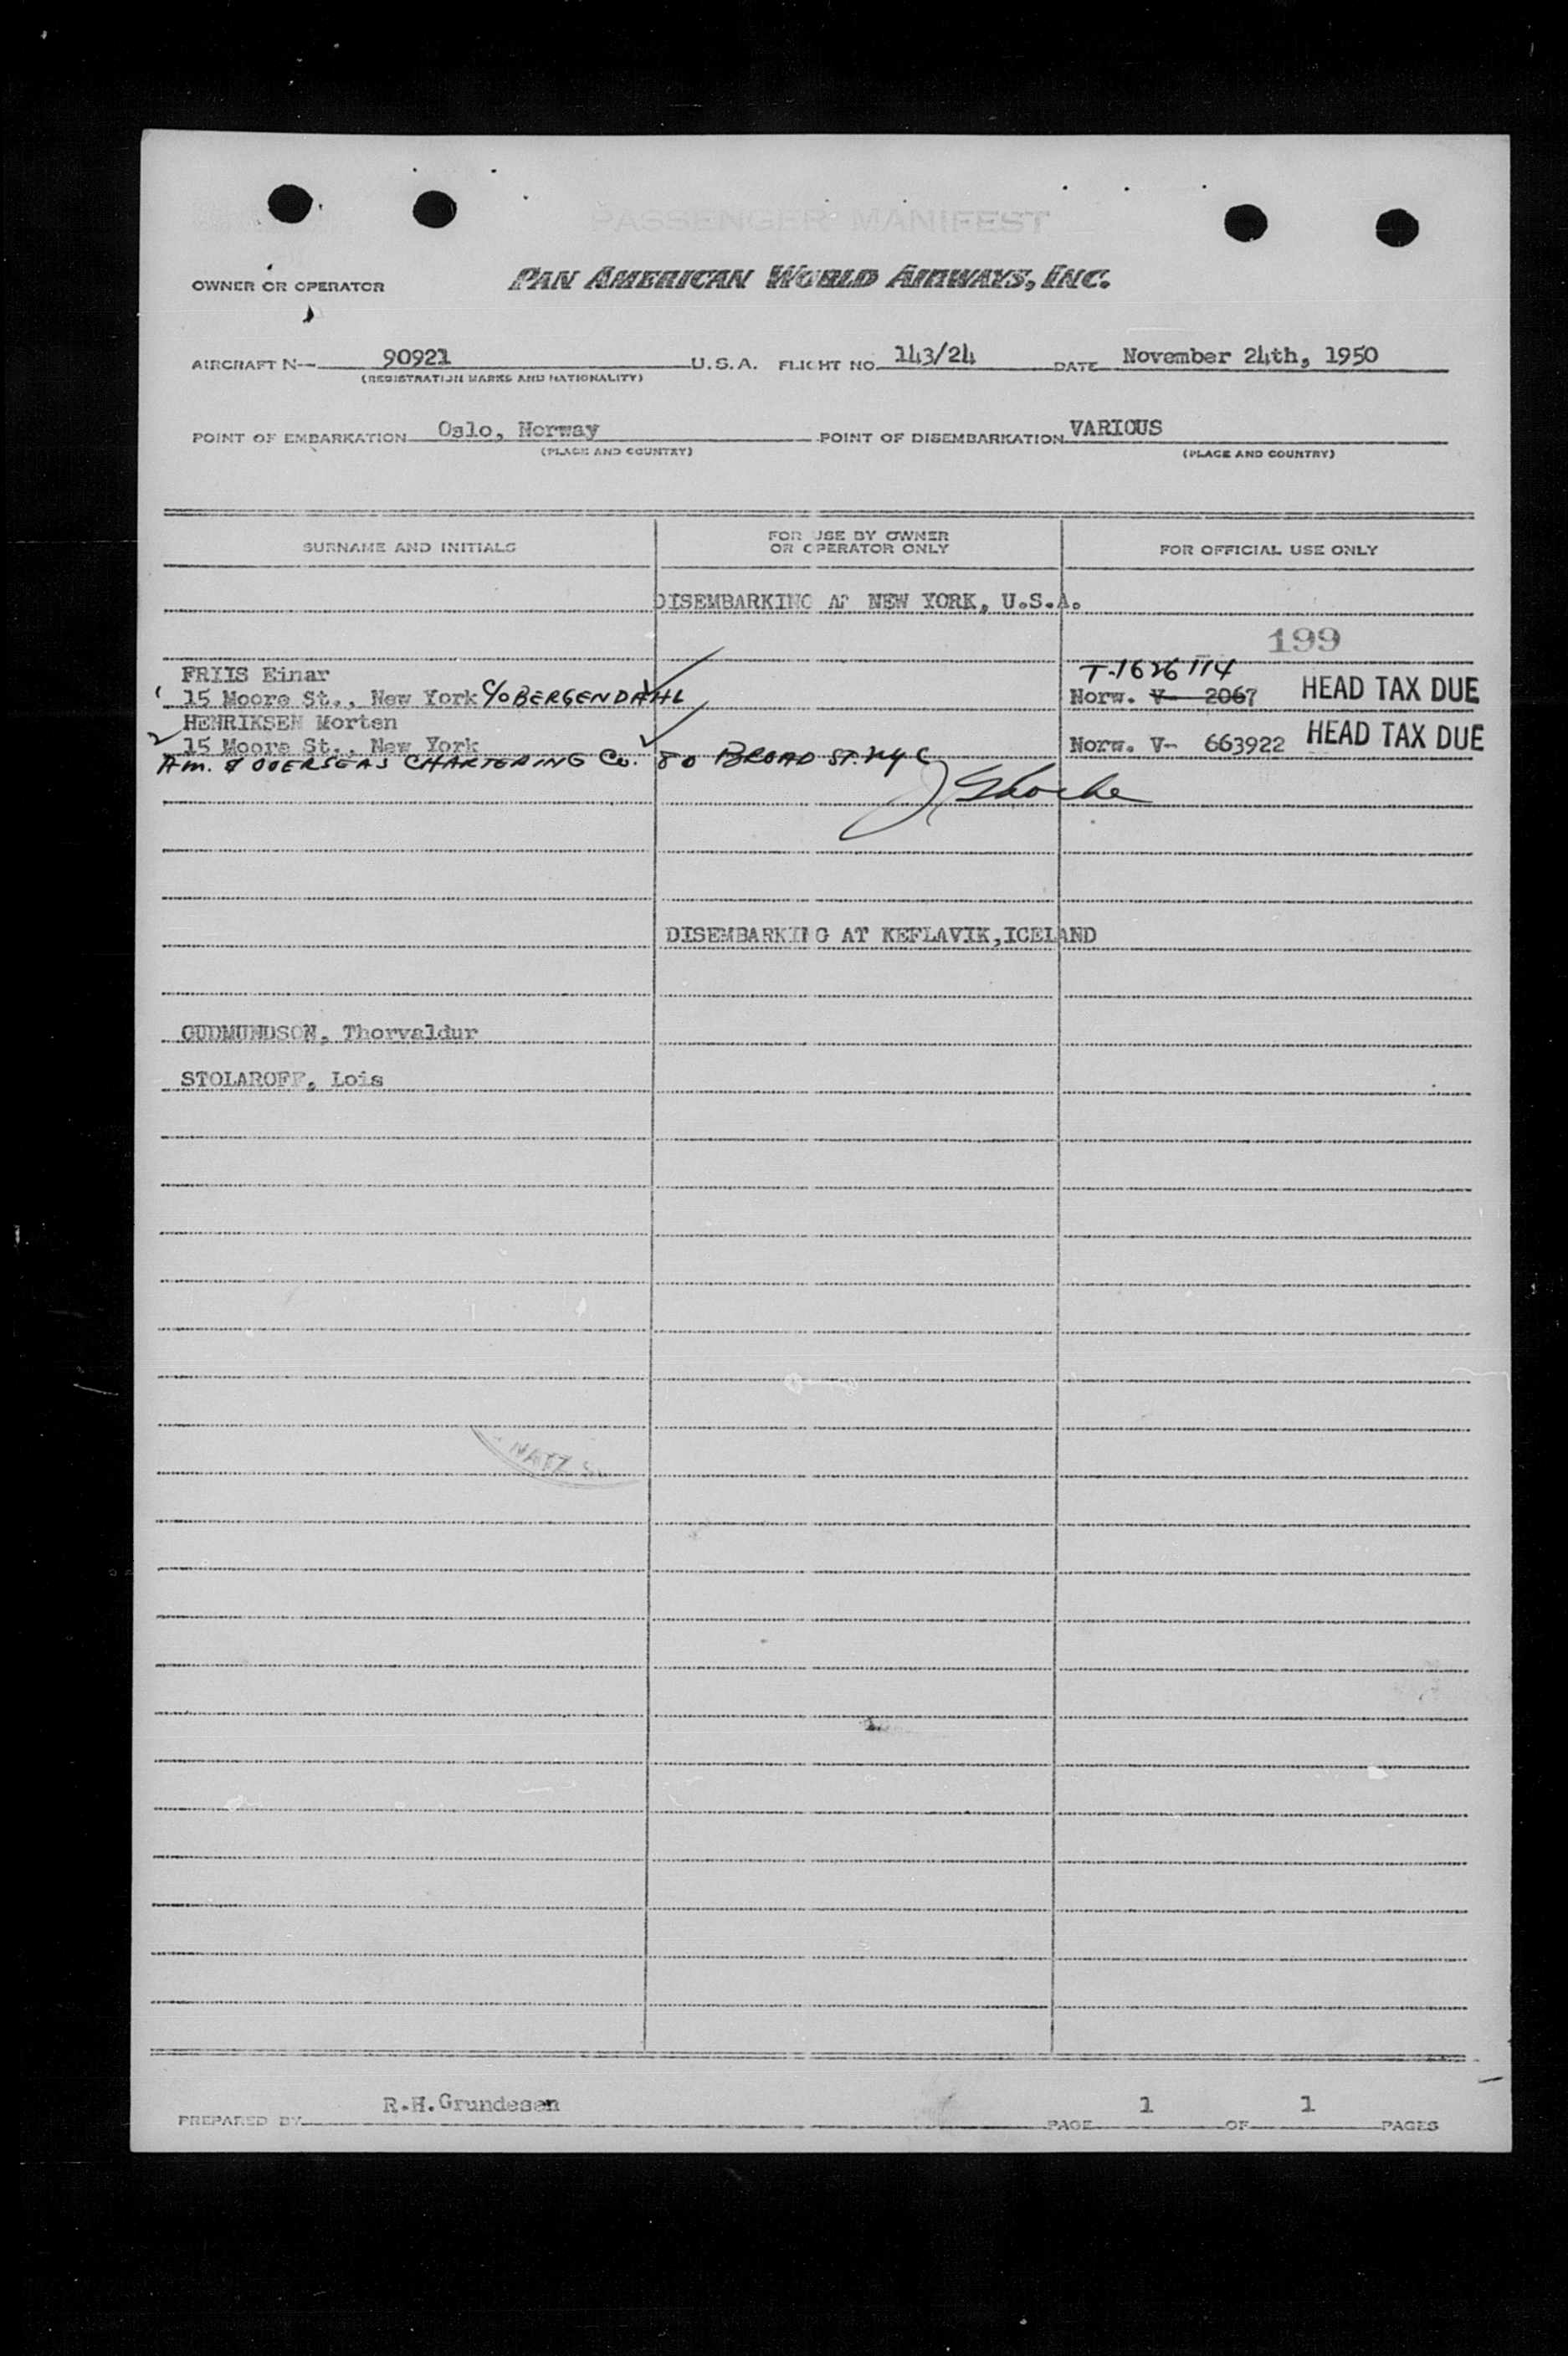 PASSENGER MANIFEST
OWNER OR OPERATOR PAN AMERICAN WORLD AIRWAYS, INC.
AIRCRAFT N— 90921 U.S.A. FLIGHT NO. 143/24 DATE November 24th, 1950
(REGISTRATION MARKS AND NATIONALITY)
POINT OF EMBARKATION Oslo, Norway POINT OF DISEMBARKATION VARIOUS
(PLACE AND COUNTRY) (PLACE AND COUNTRY)
SURNAME AND INITIALS FOR USE BY OWNER OR OPERATOR ONLY FOR OFFICIAL USE ONLY
DISEMBARKING AT NEW YORK, U.S.A.
199
FRIIS Einar T-1626114
15 Moore St., New York c/o BERGENDAHL Norw. V- 2067 HEAD TAX DUE
HENRIKSEN Morten
2 15 Moore St., New York Norw. V- 663922 HEAD TAX DUE
Am. & OVERSEAS CHARTERING Co. 80 BROAD ST. NYC
DISEMBARKING AT KEFLAVIK,ICELAND
GUDMUNDSON, Thorvaldur
STOLAROFF, Lois
PREPARED BY R.H.Grundesen PAGE 1 OF 1 PAGES